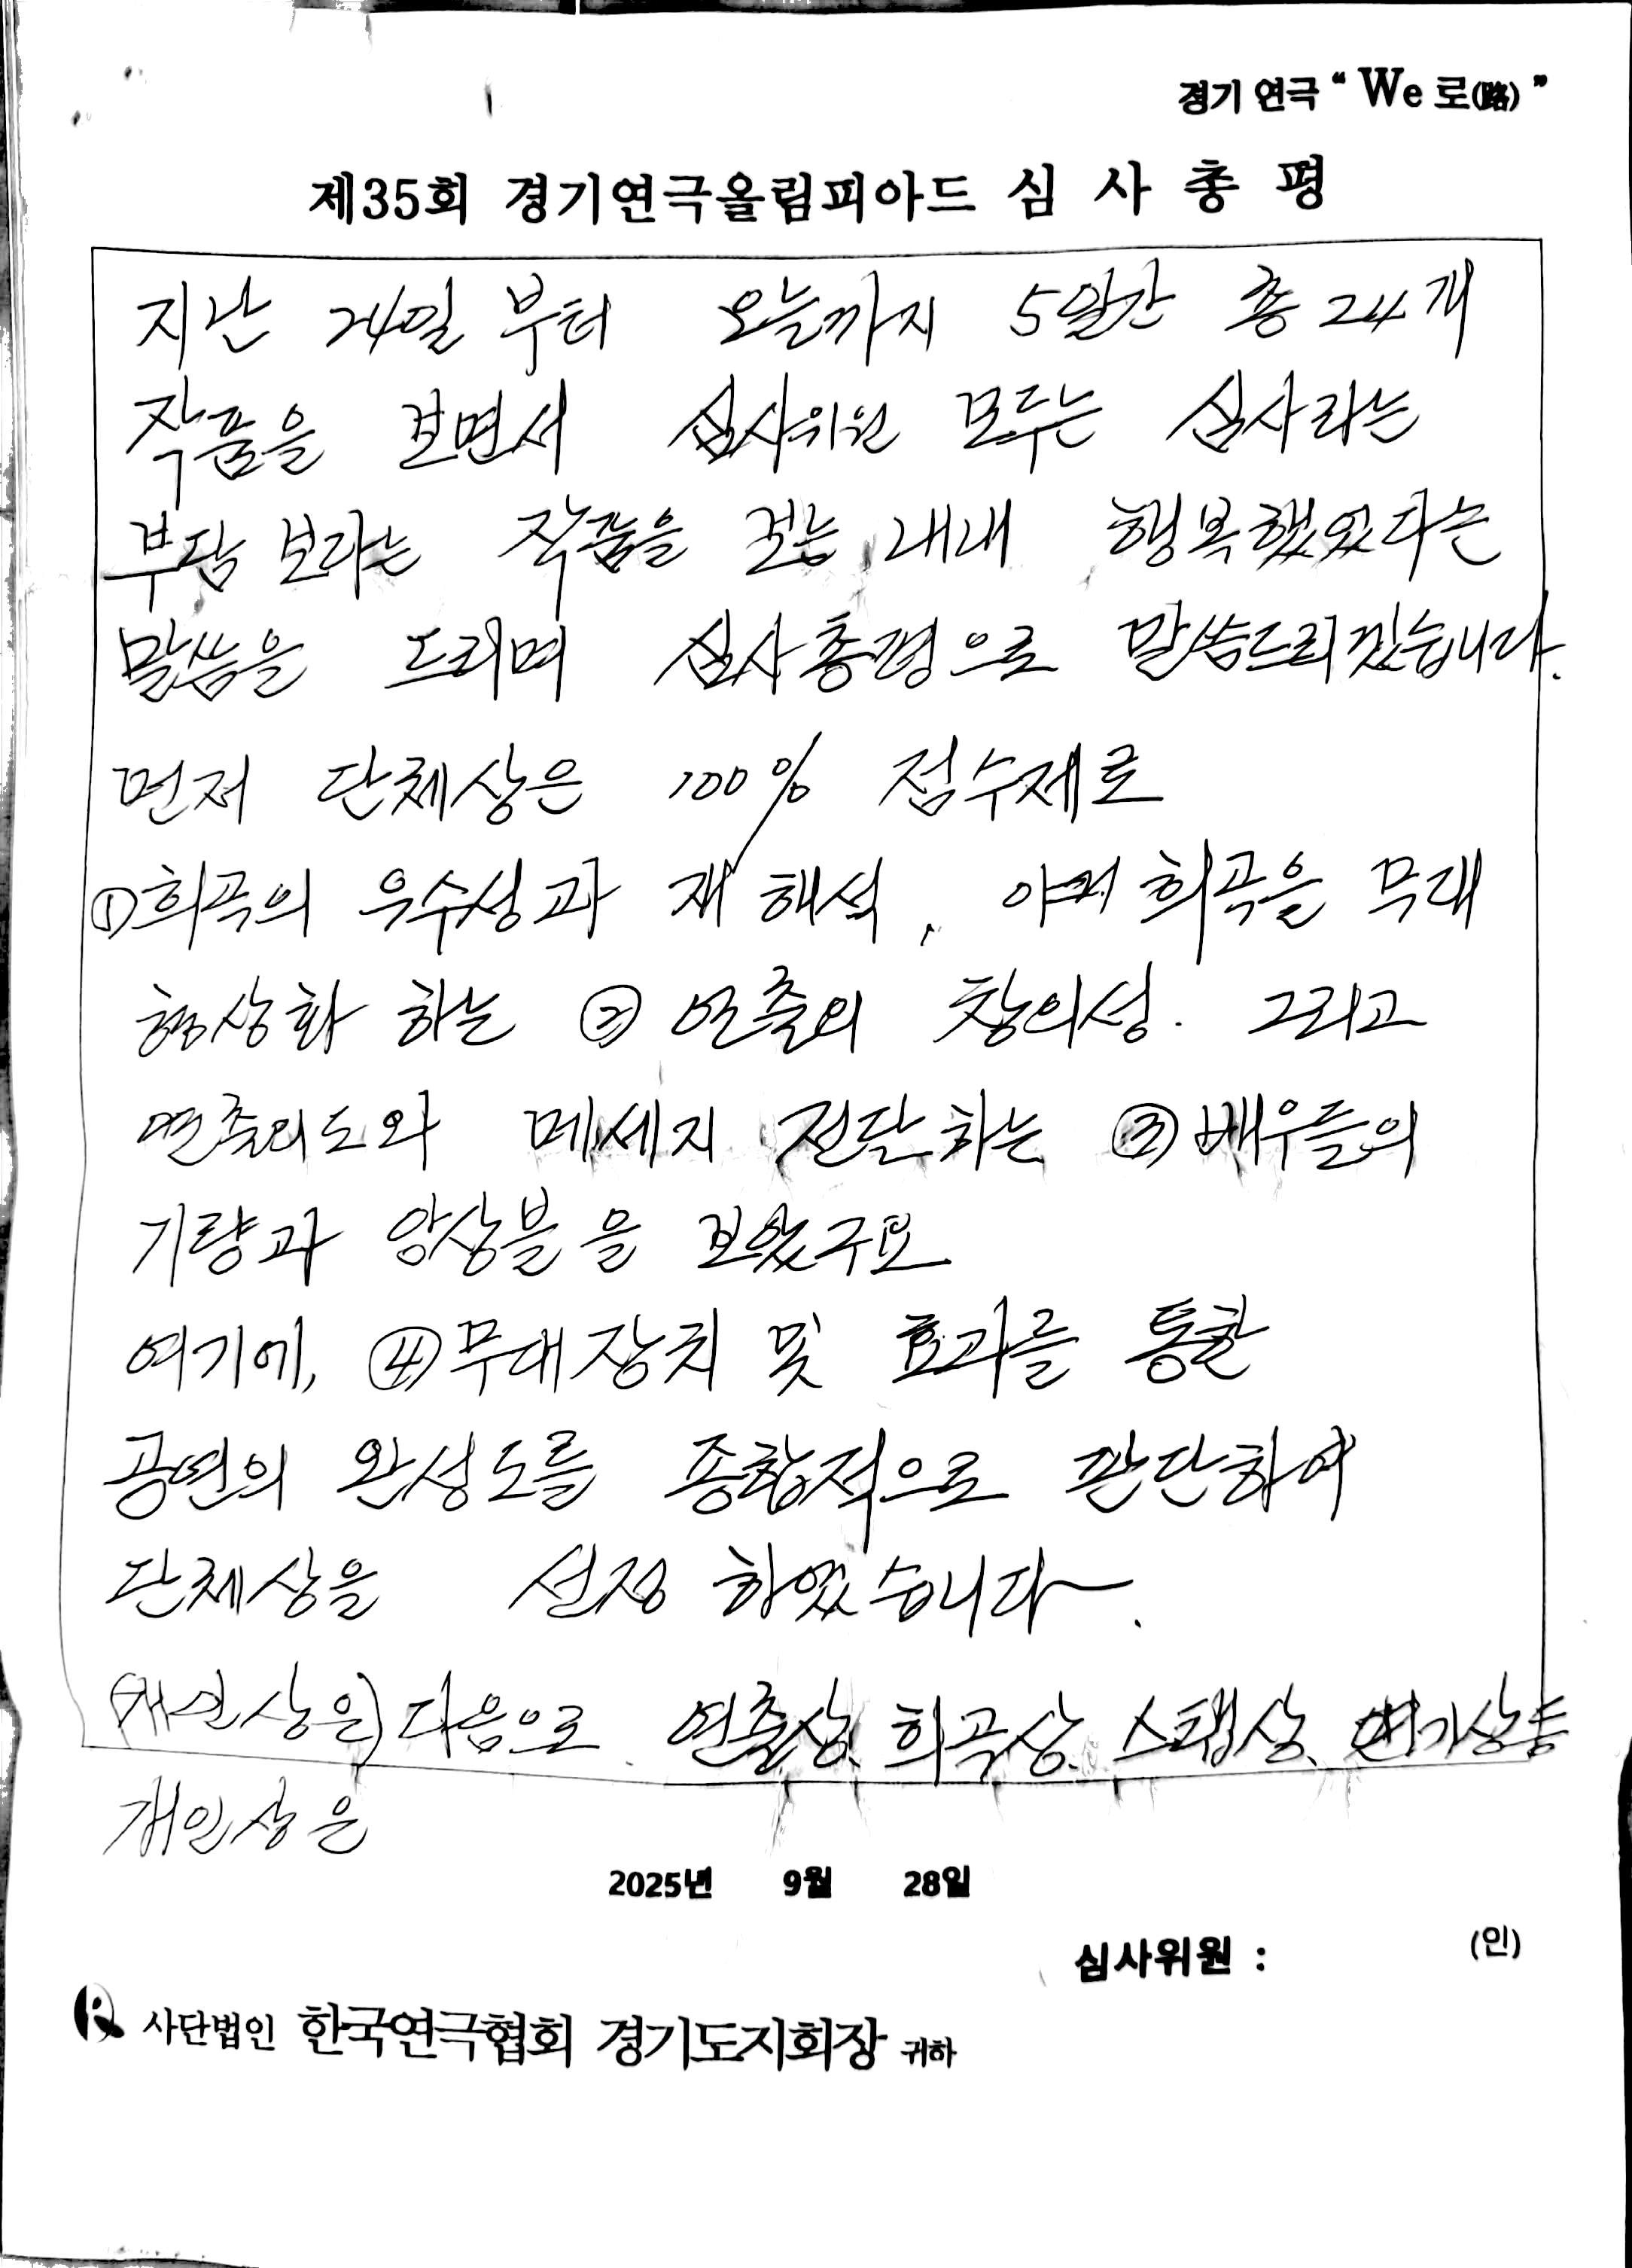 경기 연극 “ We 로(路) ”
제35회 경기연극올림피아드 심 사 총 평
지난 24일 부터 오늘까지 5일간 총 24개
작품을 보면서 심사위원 모두는 심사라는
부담 보다는 작품을 보는 내내 행복했었다는
말씀을 드리며 심사총평으로 말씀드리겠습니다.
먼저 단체상은 100% 점수제로
① 희곡의 우수성과 재해석, 희곡을 무대
형상화 하는 ② 연출의 창의성. 그리고
연출의도와 메세지 전달하는 ③ 배우들의
기량과 앙상블을 보았구요
여기에, ④ 무대장치 및 효과를 통한
공연의 완성도를 종합적으로 판단하여
단체상을 선정 하였습니다~.
(개인상은) 다음으로 연출상, 희곡상, 스탭상, 연기상등
개인상은
2025년 9월 28일
심사위원 : (인)
사단법인 한국연극협회 경기도지회장 귀하